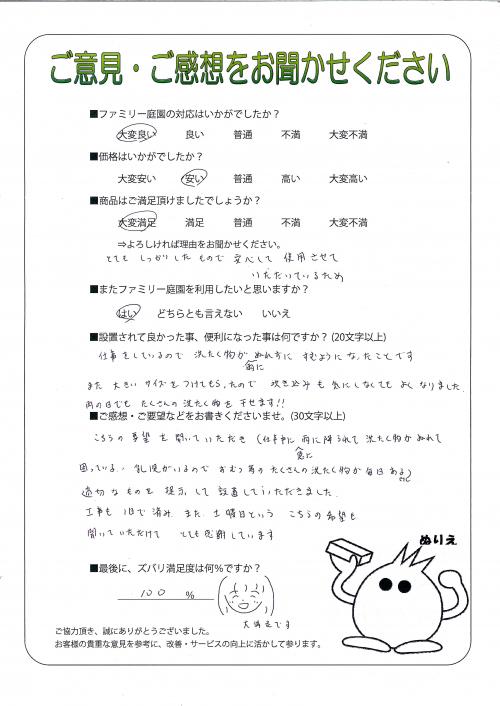 ご意見・ご感想をお聞かせください
■ファミリー庭園の対応はいかがでしたか？
大変良い 良い 普通 不満 大変不満
■価格はいかがでしたか？
大変安い 安い 普通 高い 大変高い
■商品はご満足頂けましたでしょうか？
大変満足 満足 普通 不満 大変不満
⇒よろしければ理由をお聞かせください。
とても しっかりした もので 安心して 使用させて
いただいているため
■またファミリー庭園を利用したいと思いますか？
はい どちらとも言えない いいえ
■設置されて良かった事、便利になった事は何ですか？(20文字以上)
仕事をしているので 洗たく物が 雨に ぬれずに すむようになったことです
また 大きいサイズをつけてもらったので 吹き込みも 気にしなくてもよくなりました
雨の日でも たくさんの洗たく物を 干せます!!
■ご感想・ご要望などをお書きくださいませ。(30文字以上)
こちらの要望を聞いていただき (仕事中に 急に 雨に降られて 洗たく物がぬれて
困っている。乳児がいるので おむつ等のたくさんの洗たく物が毎日ある)
適切なものを 提示して 設置していただきました
工事も 1日で済み また 土曜日という こちらの希望も
聞いていただけて とても感謝しています
■最後に、ズバリ満足度は何%ですか？
100 %
大満足です
ぬりえ
ご協力頂き、誠にありがとうございました。
お客様の貴重な意見を参考に、改善・サービスの向上に活かして参ります。